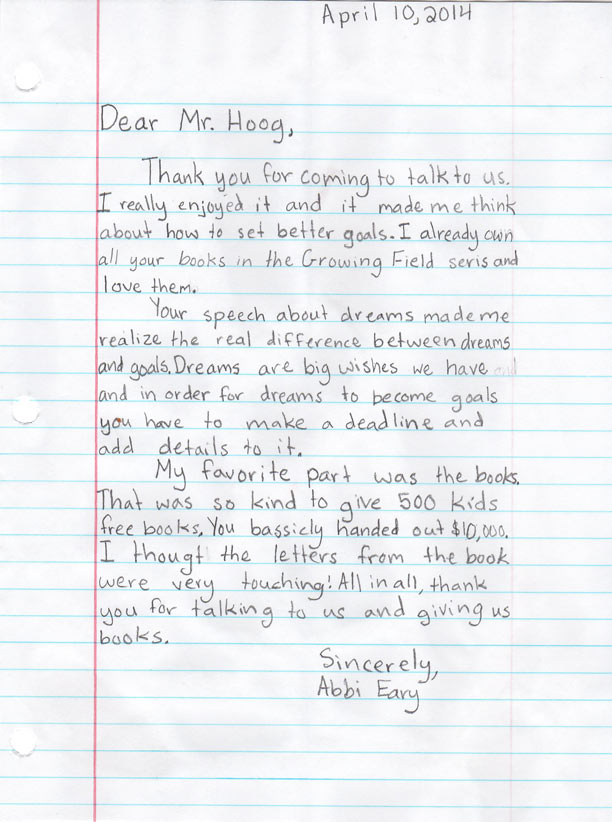 April 10, 2014
Dear Mr. Hoog,
Thank you for coming to talk to us.
I really enjoyed it and it made me think
about how to set better goals. I already own
all your books in the Growing Field seris and
love them.
Your speech about dreams made me
realize the real difference between dreams
and goals. Dreams are big wishes we have
and in order for dreams to become goals
you have to make a deadline and
add details to it.
My favorite part was the books.
That was so kind to give 500 kids
free books. You bassicly handed out $10,000.
I thougt the letters from the book
were very touching! All in all, thank
you for talking to us and giving us
books.
Sincerely,
Abbi Eary